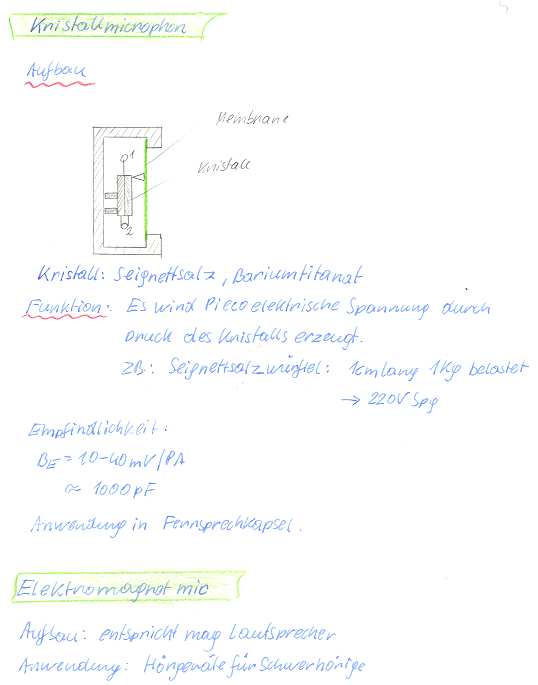 Kristallmicrophon
Aufbau
Membrane
Kristall
1
2
Kristall: Seignettsalz, Bariumtitanat
Funktion: Es wird Piecoelektrische Spannung durch
Druck des Kristalls erzeugt.
ZB: Seignettsalzwürfel: 1cm lang 1Kg belastet
→ 220V Spg
Empfindlichkeit:
BE = 10-40mV/PA
≈ 1000pF
Anwendung in Fernsprechkapsel.
Elektromagnet mic
Aufbau: entspricht mag Lautsprecher
Anwendung: Hörgeräte für Schwerhörige